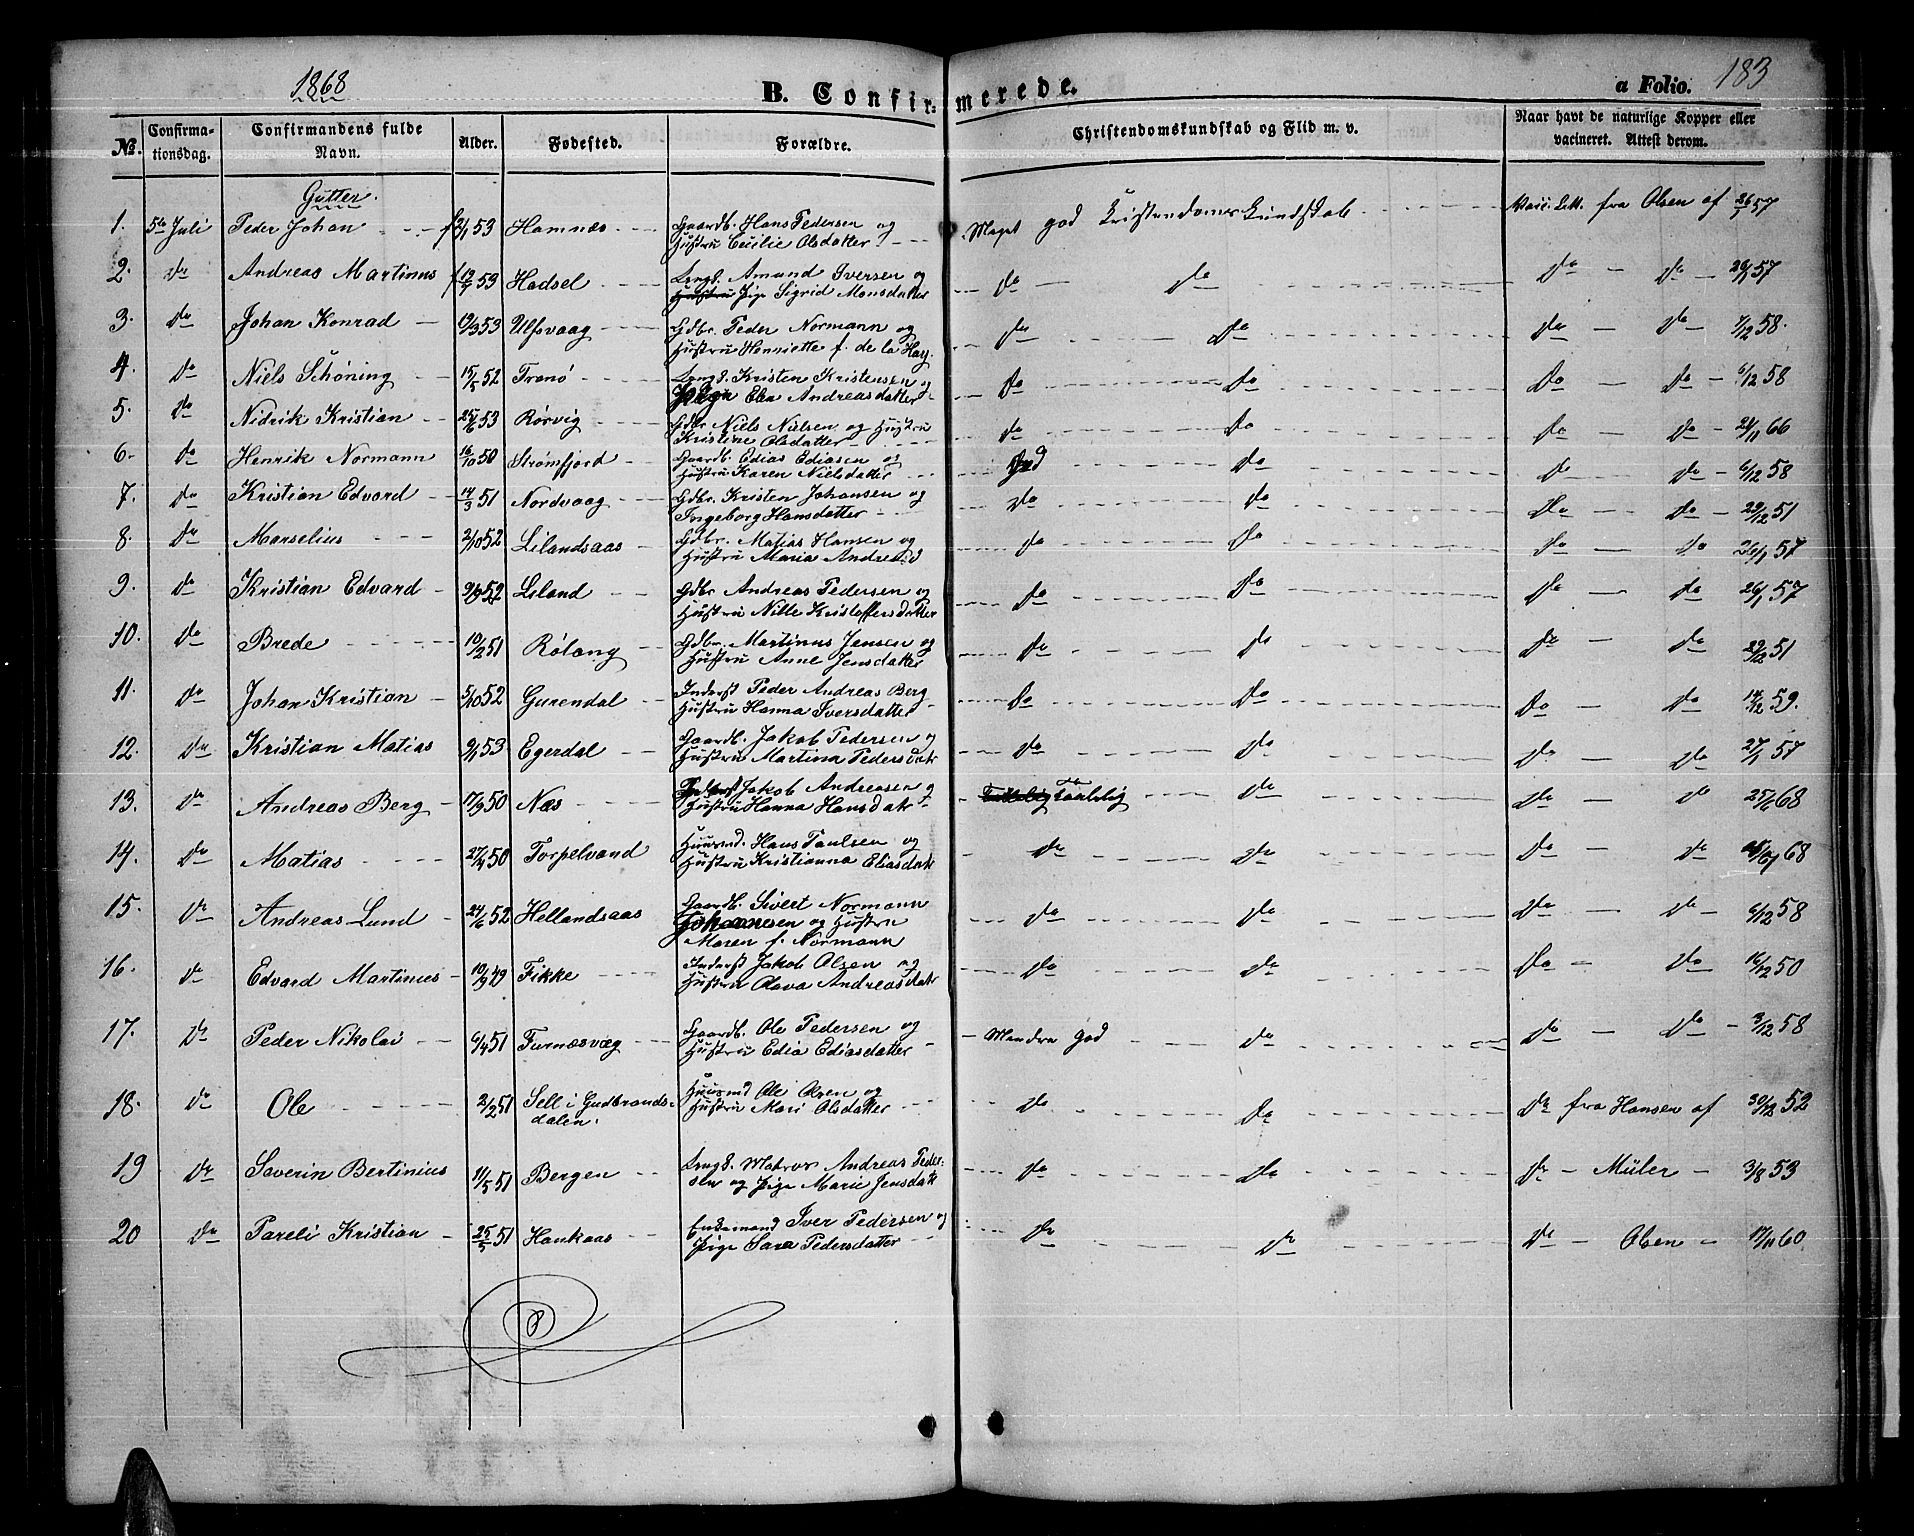 1868 B. Confirmerede. a Folio. 183
No. Confirmationsdag. Confirmandens fulde Navn. Alder. Fødested. Forældre. Christendomskundskab og Flid m. v. Naar havt de naturlige Kopper eller vacineret. Attest derom.
Gutter.
1. 5te Juli Peder Johan f 2/1 53 Hamnæs Gaardb. Hans Pedersen og Meget god Kristendoms Kundskab fra Olsen af 26/7 57
Hustru Cecilie Olsdatter
2. do Andreas Martinus f 12/7 53 Hadsel Lengd. Amund Iversen og do do do do 57
Pige Sigrid Monsdatter
3. do Johan Konrad 19/3 53 Ulfsvaag Gdbr. Peder Normann og do do do do 7/12 58.
Hustru Henriette f. de la Hay
4. do Niels Schøning 15/5 52 Tranø Lengd. Kristen Kristensen og do do do do 6/12 58
Pige Elen Andreasdatter
5. do Nidrik Kristian 25/6 53 Rørvig Gdbr Niels Nielsen og Hustru do do do do 24/11 66
Kristine Olsdatter
6. do Henrik Normann 16/10 50 Strømfjord Gaardb. Edias Ediasen og God do do do 6/12 58
Hustru Karen Nielsdatter
7. do Kristian Edvard 14/3 51 Nordvaag Gdbr. Kristen Johansen og do do do do 29/12 51
Ingeborg Hansdatter
8. do Marselius 2/10 52 Lilandsaas Gdbr. Matias Hansen og do do do do 26/1 57
Hustru Maria Andreasd
9. do Kristian Edvard 52 Liland Gdbr Andreas Pedersen og do do do do 26/1 57
Hustru Nille Kristoffersdatter
10. do Brede 10/2 51 Rølang Gdbr. Martinus Jensen og do do do do 29/12 51
Hustru Anne Jensdatter
11. do Johan Kristian 5/10 52 Gurendal Inderst Peder Andreas Berg do do do do 14/12 59.
Hustru Hanna Iversdatter
12. do Kristian Matias 9/1 53 Egerdal Gaardb. Jakob Pedersen og do do do do 27/1 57
Hustru Martina Pedersdatr
13. do Andreas Berg 17/9 50 Næs Inderst Jakob Andreasen og Taalelig do do do 25/6 68
Hustru Hanna Hansdatr
14. do Matias 27/4 50 Torpelvand Huusmd. Hans Paulsen og do do do do 68
Hustru Kristianna Eliasdatr
15. do Andreas Lund 24/6 52 Hellandsaas Gaardb. Sivert Normann do do do do 6/12 58
Johannesen og Hustru
Maren f. Normann
16. do Edvard Martinius 10/9 49 Fikke Inderst Jakob Olsen og do do do do 16/12 50
Hustru Olava Andreasdatr
17. do Peder Nikolai 6/4 51 Furnæsvæg Gaardb. Ole Pedersen og Mendre god do do do 3/12 58
Hustru Edia Ediasdatter
18. do Ole 2/2 51 Sell i Gudbrands- Huusmd Ole Olsen og do do do fra Hansen af 30/12 52
dalen. Hustru Mari Olsdatter
19 do Severin Bertinius 11/5 51 Bergen Lengd. Matros Andreas Peder- do do do Müler 3/8 53
sen og Pige Marie Jensdatr
20 do Pareli Kristian 25/5 51 Haukaas Enkemand Iver Pedersen og do do do Olsen 17/11 60
Pige Sara Pedersdatter